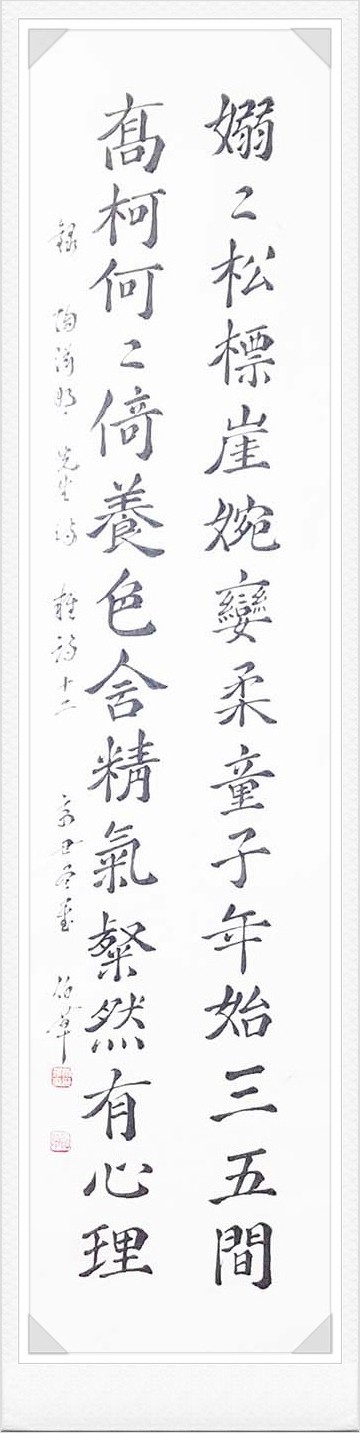 嫋〻松標崖婉孌柔童子年始三五間
髙柯何〻倚養色含精氣粲然有心理
錄 陶淵明 先生詩 雜詩十二 辛丑冬